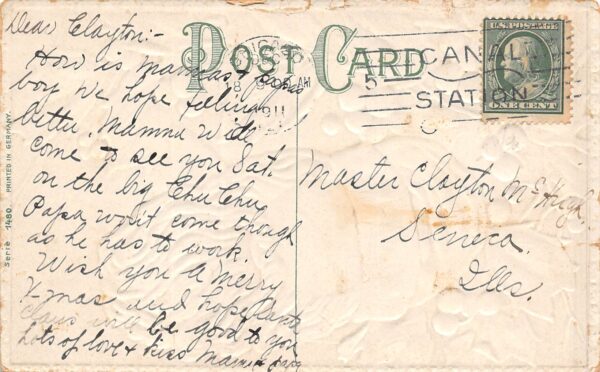 Dear Clayton:-
How is mamas & papas
boy we hope feeling
better. Mamma will
come to see you Sat.
on the big Chu Chu
Papa won't come though
as he has to work.
Wish you a Merry
X-mas and hope Santa
Claus will be good to you
Lots of love & kiss Mama & papa
POST CARD
18 8-30 AM
1911
CANAL
STATION
5
U.S. POSTAGE
ONE CENT
Master Clayton McHugh.
Seneca.
Ills.
Serie 1480. PRINTED IN GERMANY.